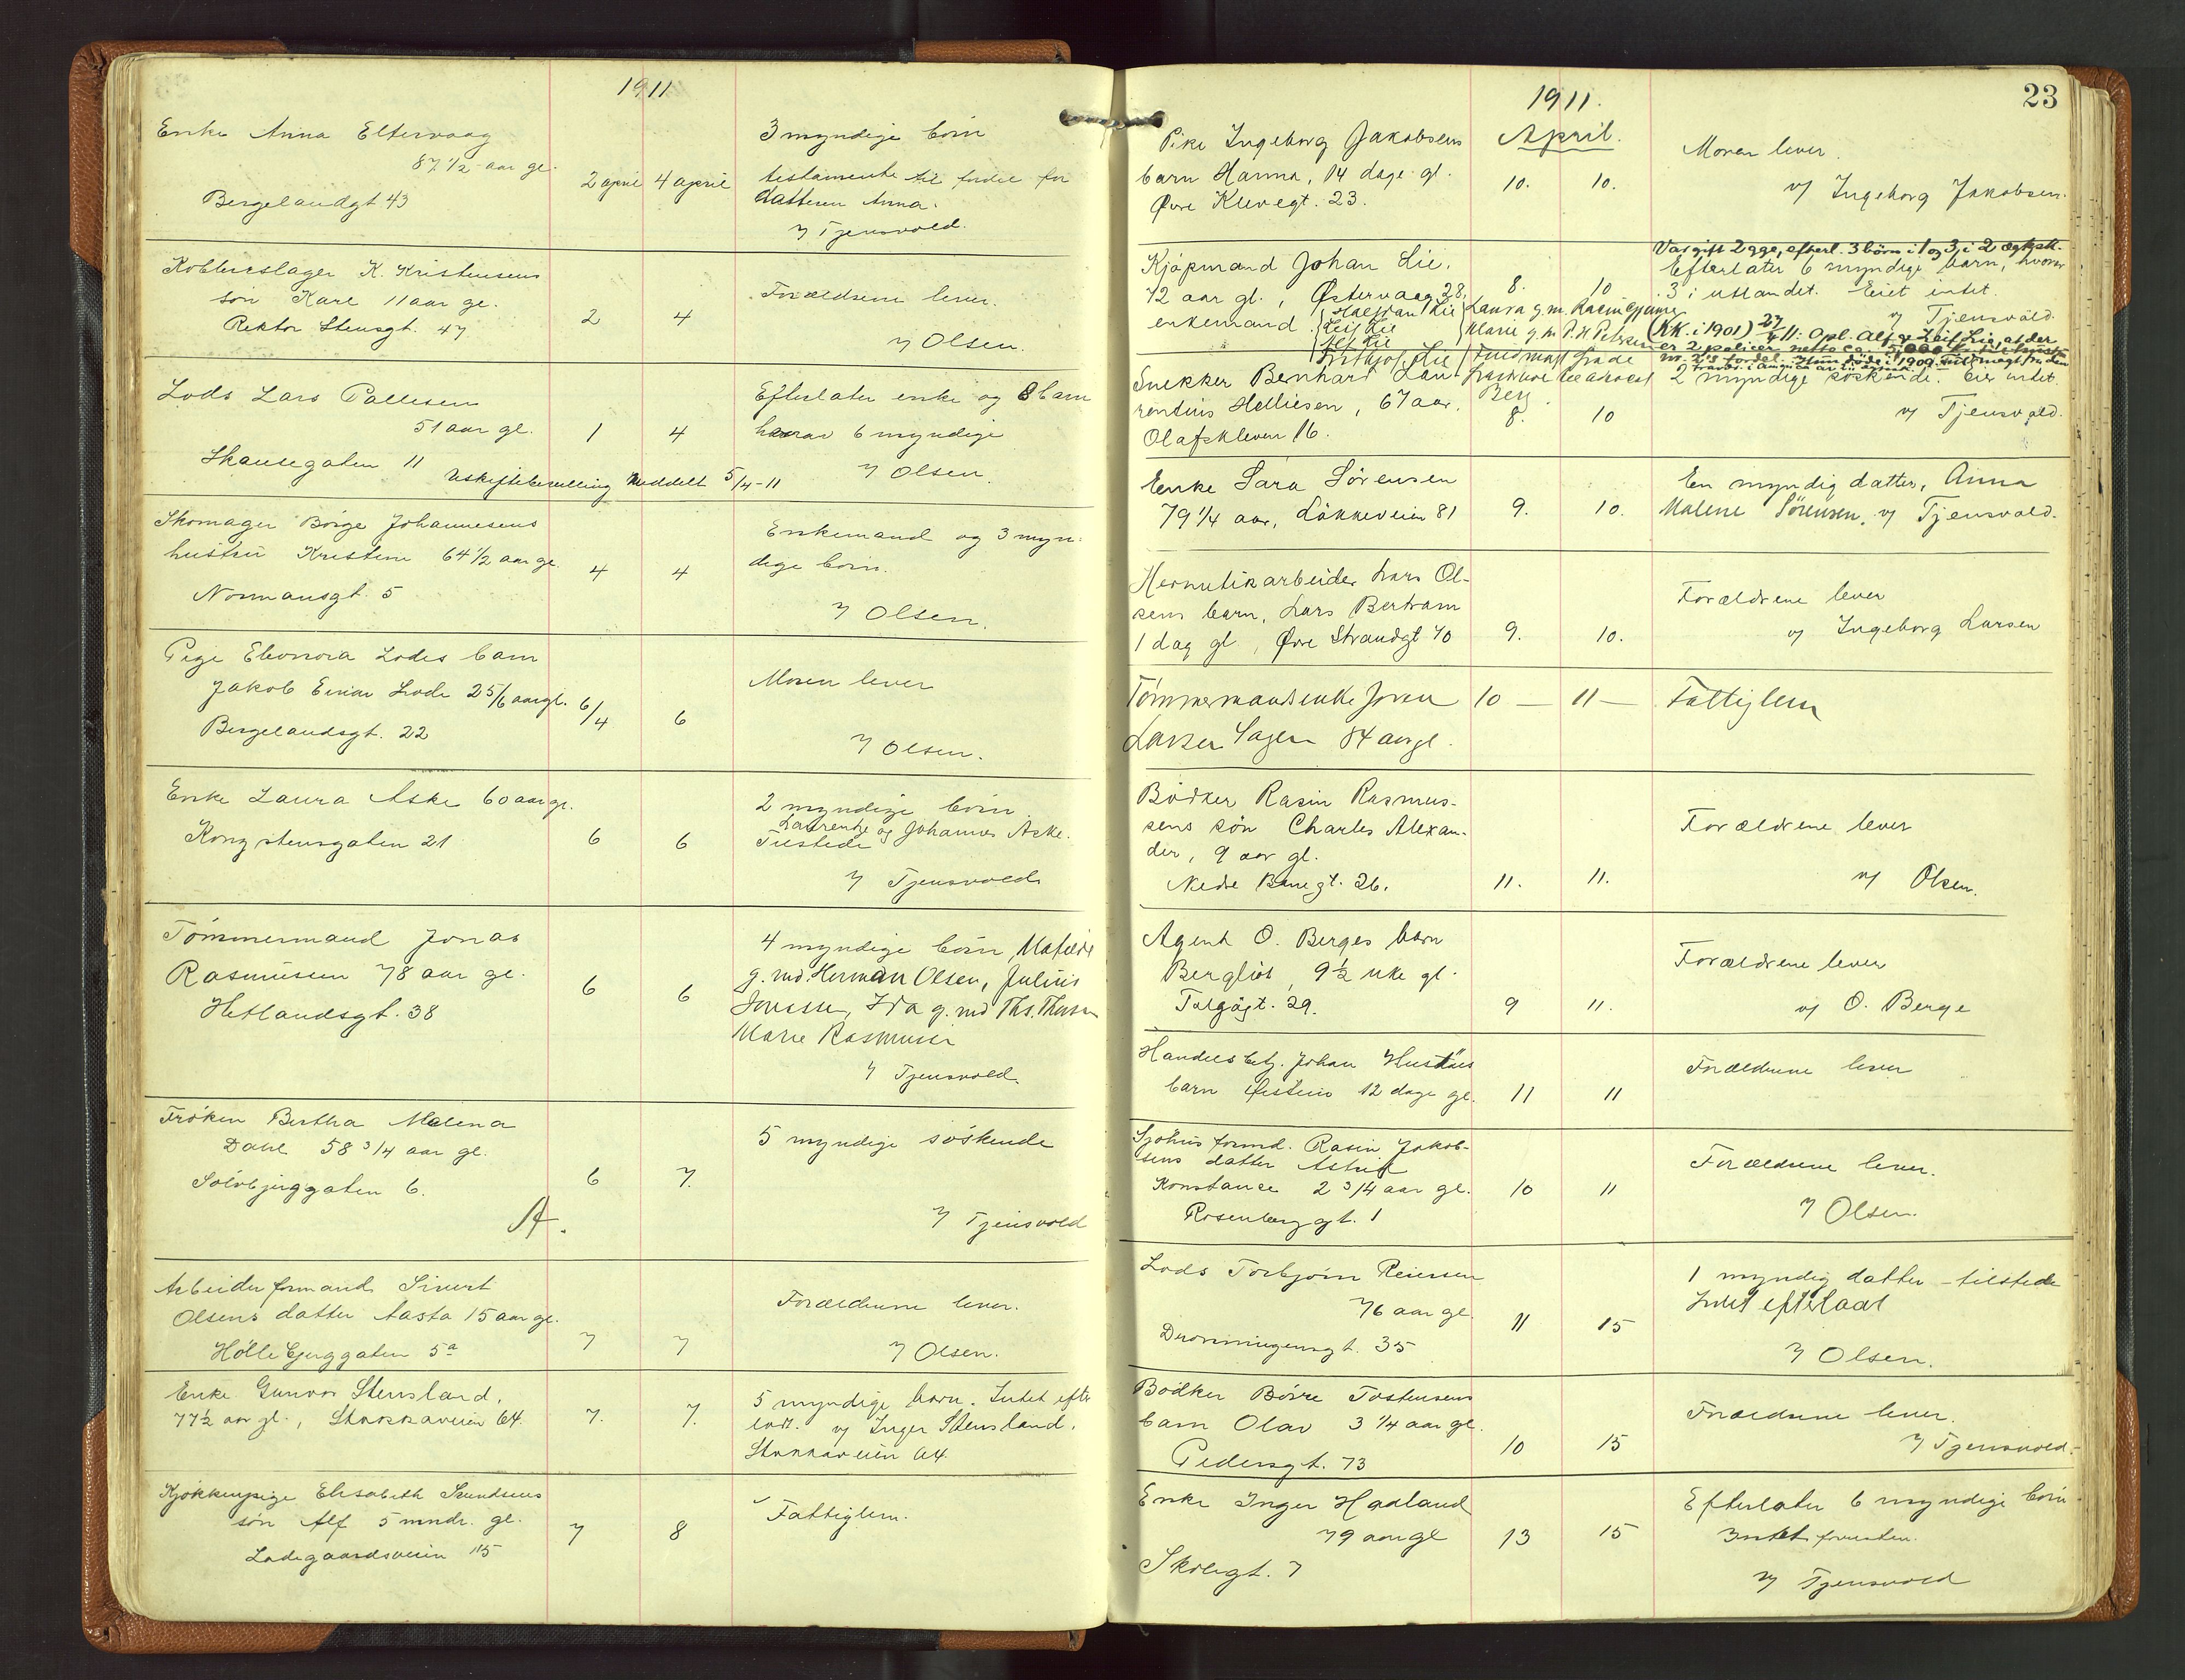 1911
Enke Anna Eltervaag
87 1/2 aar gl.
Bergelandgt 43
2 april
4 april
3 myndige börn
testamente til fordel for
datteren Anna.
v/ Tjensvold.
Kobberslager K. Kristensens
sön Karl 11 aar gl.
Rektor Stensgt. 47
2
4
Forældrene lever.
v/ Olsen.
Lods Lars Pallesen
51 aar gl.
Skansegaten 11
1
4
Efterlater enke og 8 barn
hvorav 6 myndige
v/ Olsen.
Uskiftebevilling meddelt 5/4-11
Skomager Börge Johannesens
hustru Kristine 64 1/2 aar gl.
Normansgt. 5
4
4
Enkemand og 3 myn-
dige börn.
v/ Olsen.
Pige Eleonora Lodes barn
Jakob Einar Lode 2 5/6 aar gl.
Bergelandsgt. 22
6/4
6
Moren lever
v/ Olsen.
Enke Laura Aske 60 aar gl.
Kongstensgaten 21
6
6
2 myndige börn
Laurentze og Johannes Aske.
Tilstede
v/ Tjensvold
Tömmermand Jonas
Rasmussen 78 aar gl.
Hetlandsgt. 38
6
6
4 myndige börn, Matilde
g. md. Herman Olsen, Julius
Jonassen, Ida g. md Ths. Thorsen
Marie Rasmussen
v/ Tjensvold.
Fröken Bertha Malena
Dahl 58 3/4 aar gl.
Solvbjerggaten 6.
A.
6
7.
5 myndige söskende
v/ Tjensvold
Arbeiderformand Sivert
Olsens datter Aasta 15 aar gl.
Höllebjerggaten 5a
7
7
Forældrene lever.
v/ Olsen.
Enke Gunvor Stensland,
77½ aar gl., Stokkaveien 64.
7.
7.
5 myndige barn. Intet efter
latt. v/ Inger Stensland,
Stokkaveien 64.
Kjökkenpige Elisabeth Sundsens
sön Alf 5 mndr. gl.
Ladegaardsveien 115
7
8
Fattiglem.
23
1911.
April.
Pike Ingeborg Jakobsens
barn Hanna, 14 dage gl.
Øvre Klevegt. 23.
10.
10.
Moren lever.
v/ Ingeborg Jakobsen.
Kjöpmand Johan Lie,
72 aar gl., Østervaag 28,
enkemand.
8.
10
Var gift 2 gge, efterl. 3 börn i 1 og 3 i 2 ægtesk.
Efterlater 6 myndige barn, hvorav
3 i utlandet. Eiet intet.
v/ Tjensvold.
Halfdan Lie
Leif Lie
Alf Lie
Frithjof Lie
Laura g.m. Rasm Gjerne
Marie g.m. P. H. Petersen
(KK. i 1901) 27/4 11: Opl. Alf og Leif Lie, at der
er 2 policer netto ca.
Snekker Bernhart Lau-
rentius Helliesen, 67 aar,
Olafskleven 16.
8.
10
2 myndige söskende. Eier intet.
v/ Tjensvold.
Enke Sara Sörensen
79 1/4 aar, Lökkeveien 81
9.
10.
En myndig datter, Anna
Malene Sörensen, v/ Tjensvold.
Hermetikarbeider Lars Ol-
sens barn, Lars Bertram
1 dag gl., Øvre Strandgt 70
9.
10.
Forældrene lever
v/ Ingeborg Larsen
Tömmermandsenke
Larsen 84 aar gl.
10 —
11 —
Fattiglem
Bödker Rasin Rasmus-
sens sön Charles Alexan-
der, 9 aar gl.
Nedre Banegt. 26.
11.
11.
Forældrene lever
v/ Olsen.
Agent O. Berges barn
Bergliot, 9½ uke gl.
Torgögt. 29.
9
11.
Forældrene lever
v/ O. Berge
Handelsbetj. Johan Hustöls
barn Øistein 12 dage gl.
11
11
Forældrene lever
Sjöhusformd. Rasin Jakob-
sens datter Astrid
Konstance 2 3/4 aar gl.
Rosenberggt. 1
10
11
Forældrene lever.
v/ Olsen.
Lods Torbjörn Reiersen
76 aar gl.
Dronningensgt. 35
11
15
1 myndig datter – tilstede
Intet efterlatt
v/ Olsen.
Bödker Börre Tostensens
barn Olav 3 1/4 aar gl.
Pedersgt. 73
10
15
Forældrene lever.
v/ Tjensvold.
Enke Inger Hadland
79 aar gl
Skolegt. 7
13
15
Efterlater 6 myndige börn.
Intet forresten.
v/ Tjensvold